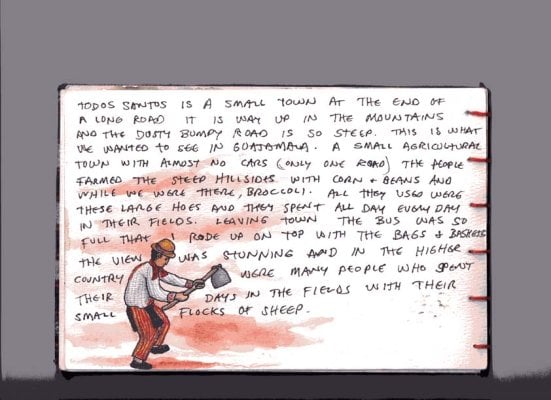 TODOS SANTOS IS A SMALL TOWN AT THE END OF
A LONG ROAD IT IS WAY UP IN THE MOUNTAINS
AND THE DUSTY BUMPY ROAD IS SO STEEP. THIS IS WHAT
WE WANTED TO SEE IN GUATAMALA. A SMALL AGRICULTURAL
TOWN WITH ALMOST NO CARS (ONLY ONE ROAD) THE PEOPLE
FARMED THE STEEP HILLSIDES WITH CORN + BEANS AND
WHILE WE WERE THERE, BROCCOLI. ALL THEY USED WERE
THESE LARGE HOES AND THEY SPENT ALL DAY EVERY DAY
IN THEIR FIELDS. LEAVING TOWN THE BUS WAS SO
FULL THAT I RODE UP ON TOP WITH THE BAGS & BASKETS
THE VIEW WAS STUNNING AND IN THE HIGHER
COUNTRY WERE MANY PEOPLE WHO SPENT
THEIR DAYS IN THE FIELDS WITH THEIR
SMALL FLOCKS OF SHEEP.